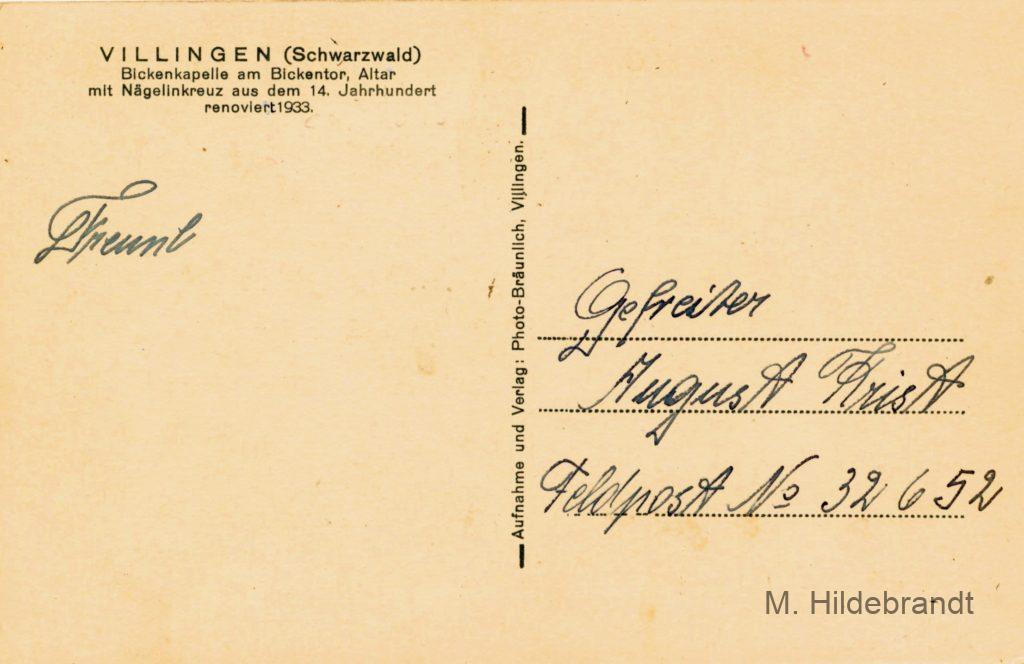 VILLINGEN (Schwarzwald)
Bickenkapelle am Bickentor, Altar
mit Nägelinkreuz aus dem 14. Jahrhundert
renoviert 1933.
Aufnahme und Verlag: Photo-Bräunlich, Villingen.
Gefreiter
August Krist
Feldpost No 32 6 52
M. Hildebrandt